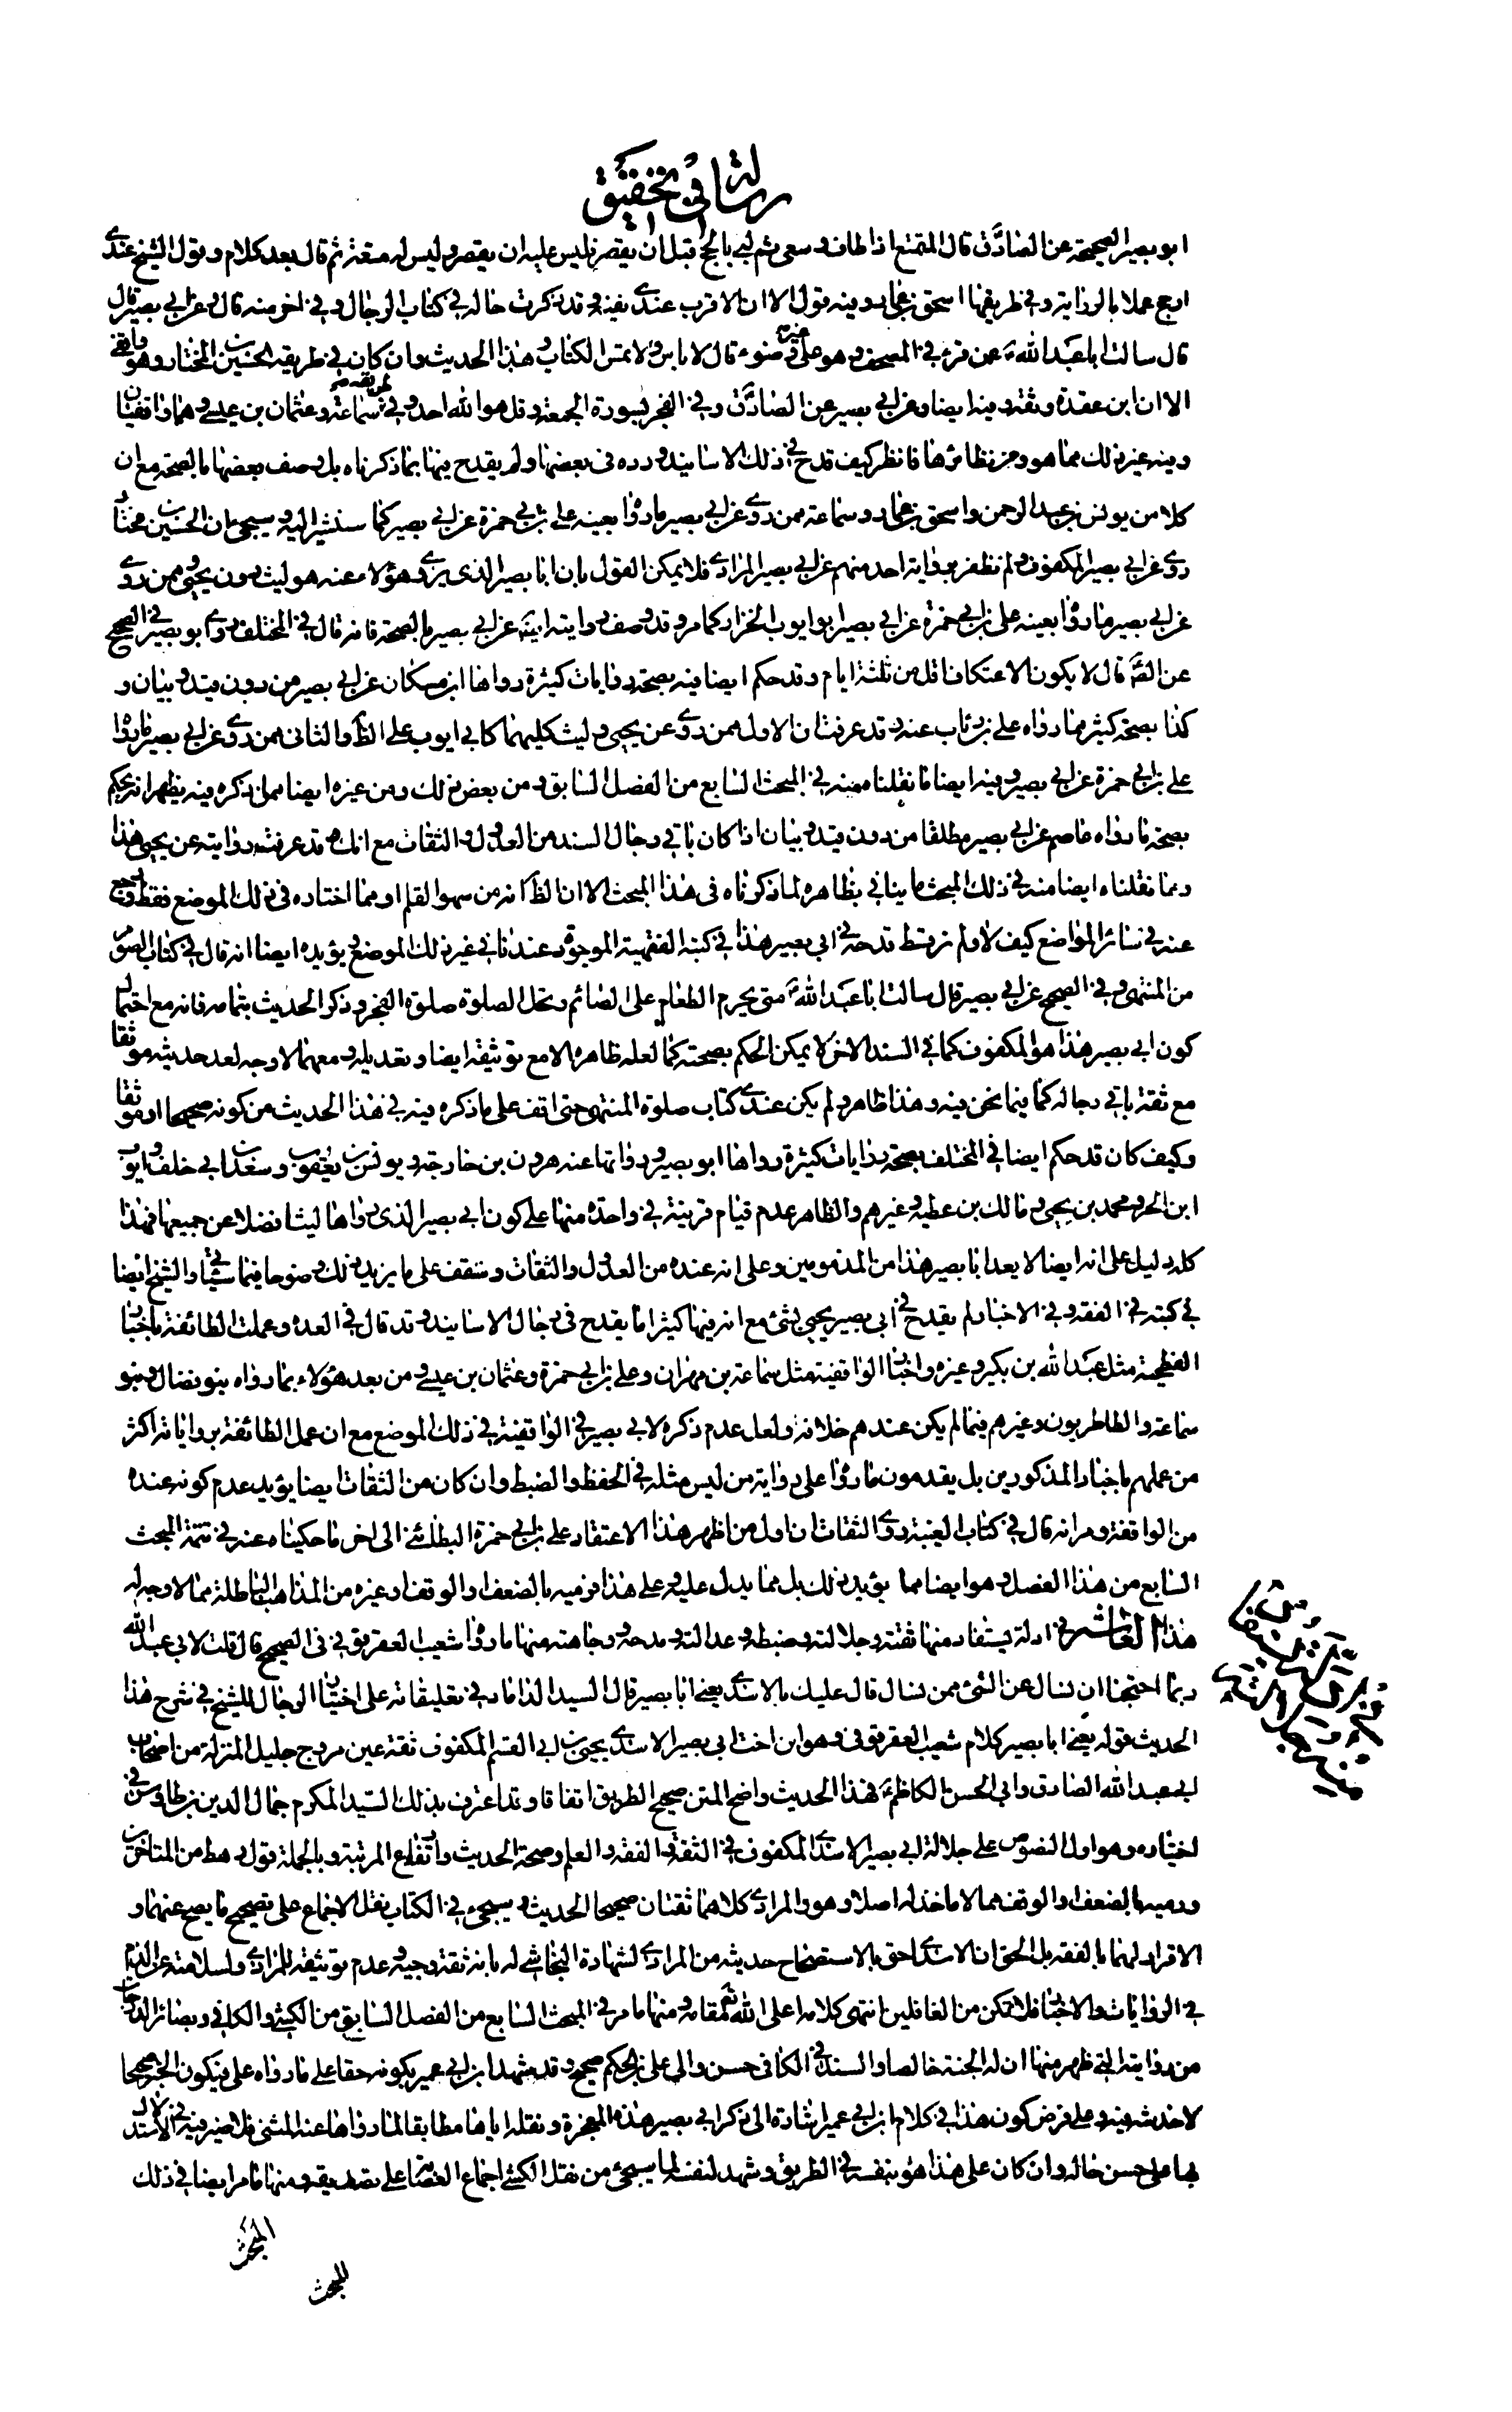 رسالة في تحقيق
ابو بصير الصحيحة عن الصادق ع قال المتمتع اذا طاف و سعى ثم لبى بالحج قبل ان يقصر فليس عليه ان يقصر و ليس له متعة ثم قال بعد كلام و قول الشيخ عندي
ارجح عملا بالرواية و في طريقها اسحق بن عمار و فيه قول الا ان الاقرب عندي ثقته و قد ذكرت حاله في كتاب الرجال و في اخر منه قال و عن ابي بصير قال
قال سالت ابا عبد الله ع عمن قرء في المصحف و هو على غير وضوء قال لا باس و لا يمس الكتاب و هذا الحديث و ان كان في طريقه الحسين بن المختار و هو واقفي
الا ان ابن عقدة وثقه و فيه ايضا و عن ابي بصير عن الصادق ع و في الفجر بسورة الجمعة و قل هو الله احد و في طريقه سماعة و عثمان بن عيسى و هما واقفيان
و فيه غير ذلك مما هو من نظائرها فانظر كيف قدح في ذلك الاسانيد و رده في بعضها و لم يقدح فيها بما ذكرناه بل وصف بعضها بالصحة مع ان
كلا من يونس بن عبد الرحمن و اسحق بن عمار و سماعة ممن روى عن ابي بصير ما رواه بعينه علي بن ابي حمزة عن ابي بصير كما سنشير اليه و سيجيئ ان الحسين بن مختار
روى عن ابي بصير المكفوف و لم نظفر برواية احد منهم عن ابي بصير المرادي فلا يمكن القول بان ابا بصير الذي يروي هؤلاء عنه هو ليث دون يحيى و ممن روى
عن ابي بصير ما رواه بعينه علي بن ابي حمزة عن ابي بصير ابو ايوب الخزاز كما مر و قد وصف روايته ايضا عن ابي بصير بالصحة فانه قال في المختلف روى ابو بصير في الصحيح
عن الص قال لا يكون الاعتكاف اقل من ثلثة ايام و قد حكم ايضا فيه بصحة روايات كثيرة رواها ابن مسكان عن ابي بصير من دون قيد و بيان و
كذا بصحة كثير مما رواه علي بن رئاب عنه و قد عرفت ان الاول ممن روى عن يحيى و ليث كليهما كابي ايوب على الظ و الثاني ممن روى عن ابي بصير ما رواه
علي بن ابي حمزة عن ابي بصير و فيه ايضا ما نقلنا منه في المبحث السابع من الفصل السابق و من بعض ذلك و من غيره ايضا مما ذكره فيه يظهر انه يحكم
بصحة ما رواه عاصم عن ابي بصير مطلقا من دون قيد و بيان اذا كان باقي رجال السند من العدول و الثقات مع انك قد عرفت روايته عن يحيى هذا
و ما نقلناه ايضا منه في ذلك المبحث ما ينافي بظاهره لما ذكرناه في هذا المبحث الا ان الظ انه من سهو القلم او مما اختاره في ذلك الموضع فقط و رجع
عنه في سائر المواضع كيف لا و لم نر قط قدحه في ابي بصير هذا في كتبه الفقهية الموجودة عندنا في غير ذلك الموضع و يؤيده ايضا انه قال في كتاب الصوم
من المنتهى و في الصحيح عن ابي بصير قال سالت ابا عبد الله ع متى يحرم الطعام على الصائم و تحل الصلوة صلوة الفجر و ذكر الحديث بتمامه فانه مع احتمال
كون ابي بصير هذا هو المكفوف كما في السند الاخر لا يمكن الحكم بصحته كما لعله ظاهره الا مع توثيقه ايضا و تعديله و معهما لا وجه لعد حديثه موثقا
مع ثقة باقي رجاله كما فيما نحن فيه و هذا ظاهر و لم يكن عندي كتاب صلوة المنتهى حتى اقف على ما ذكره فيه في هذا الحديث من كونه صحيحا او موثقا
و كيف كان قد حكم ايضا في المختلف بصحة روايات كثيرة رواها ابو بصير و رواتها عنه هرون بن خارجة و يونس بن يعقوب و سعدان بن ابي خلف و ايوب
ابن الحر و محمد بن يحيى و مالك بن عطية و غيرهم و الظاهر عدم قيام قرينة في واحدة منها على كون ابي بصير الذي رواها ليثا فضلا عن جميعها فهذا
كله دليل على انه ايضا لا يعد ابا بصير هذا من المذمومين و على انه عنده من العدول و الثقات و ستقف على ما يزيد ذلك وضوحا فيما سيأتي و الشيخ ايضا
في كتبه في الفقه و في الاخبار لم يقدح في ابي بصير يحيى بشئ مع انه فيها كثيرا ما يقدح في رجال الاسانيد و قد قال في العدة و عملت الطائفة باخبار
الفطحية مثل عبد الله بن بكير و غيره و اخبار الواقفية مثل سماعة بن مهران و علي بن ابي حمزة و عثمان بن عيسى و من بعد هؤلاء بما رواه بنو فضال و بنو
سماعة و الطاطريون و غيرهم فيما لم يكن عندهم خلافه و لعل عدم ذكره لابي بصير في الواقفية في ذلك الموضع مع ان عمل الطائفة برواياته اكثر
من عملهم باخبار المذكورين بل يقدمون ما رواه على رواية من ليس مثله في الحفظ و الضبط و ان كان من الثقات ايضا يؤيد عدم كونه عنده
من الواقفة و مر انه قال في كتاب الغيبة روى الثقات ان اول من اظهر هذا الاعتقاد علي بن ابي حمزة البطائني الى اخر ما حكيناه عنه في تتمة المبحث
السابع من هذا الفصل و هو ايضا مما يؤيد ذلك بل مما يدل عليه و على هذا فرميه بالضعف او الوقف او غيره من المذاهب الباطلة مما لا وجه له
هذا العاشر في ادلة يستفاد منها ثقته و جلالته و ضبطه و عدالته و مدحه و وجاهته منها ما رواه شعيب العقرقوفي في الصحيح قال قلت لابي عبد الله
ربما احتجنا ان نسال عن الشئ ممن نسال قال عليك بالاسدي يعني ابا بصير قال السيد الداماد في تعليقاته على اختيار الرجال للشيخ في شرح هذا
الحديث قوله يعني ابا بصير كلام شعيب العقرقوفي و هو ابن اخت ابي بصير الاسدي يحيى بن ابي القسم المكفوف ثقة عين مروج جليل المنزلة من اصحاب
ابي عبد الله الصادق و ابي الحسن الكاظم ع فهذا الحديث واضح المتن صحيح الطريق اتفاقا و قد اعترف بذلك السيد المكرم جمال الدين بن طاوس في
اختياره و هو اول النصوص على جلالة ابي بصير الاسدي المكفوف في الثقة و الفقه و العلم و صحة الحديث و ارتفاع المرتبة و بالجملة قول رهط من المتاخرين
و رميه بالضعف او الوقف مما لا ماخذ له اصلا و هو و المرادي كلاهما ثقتان صحيحا الحديث و سيجيء في الكتاب نقل الاجماع على تصحيح ما يصح عنهما و
الاقرار لهما بالفقه بل الحق ان الاسدي احق بالاستصحاح حديثه من المرادي لشهادة النجاشي له بانه ثقة وجيه و عدم توثيقه للمرادي و لسلامته عن الذم
في الروايات و الاخبار فلا تكن من الغافلين انتهى كلامه اعلى الله مقامه و منها ما مر في المبحث السابع من الفصل السابق من الكشي و الكافي و بصائر الدرجات
من روايته التي ظهر منها ان له الجنة خالصا و السند في الكافي حسن و الى علي بن الحكم صحيح و قد شهد ابن ابي عمير بكونه حقا على ما رواه علي فيكون الخبر صحيحا
لا خدشة فيه و على فرض كون هذا في كلام ابن ابي عمير اشارة الى ذكر ابي بصير هذه المعجزة و نقله اياها مطابقا لما رواها عنه المثنى فلا ضير فيه في الاستدلال
بها على حسن حاله و ان كان على هذا هو بنفسه في الطريق و شهد لنفسه لما سيجيئ من نقل الكشي اجماع العصابة على تصديقه و منها ما مر ايضا في ذلك
المبحث
المبحث